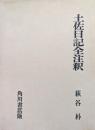 土佐日記全注釈
萩谷 朴
角川書店版